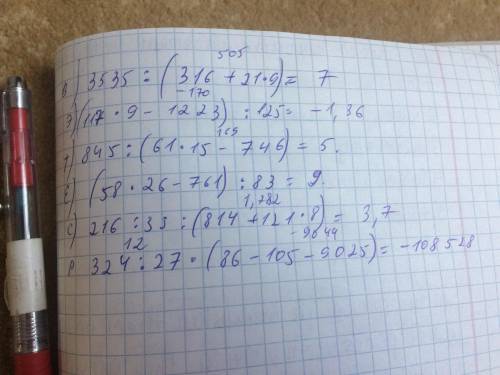 505
в) 3535 : (316 + 21·9) = 7
-170
3) (117 · 9 - 1223) : 125 = -1,36
169
1) 845 : (61·15 - 746) = 5.
(58 · 26 - 761) : 83 = 9.
1,782
c) 216 : 33 : (814 + 121 · 8) = 3,7
12 -9044
P 324 : 27 · (86 - 105 - 9025) = -108528